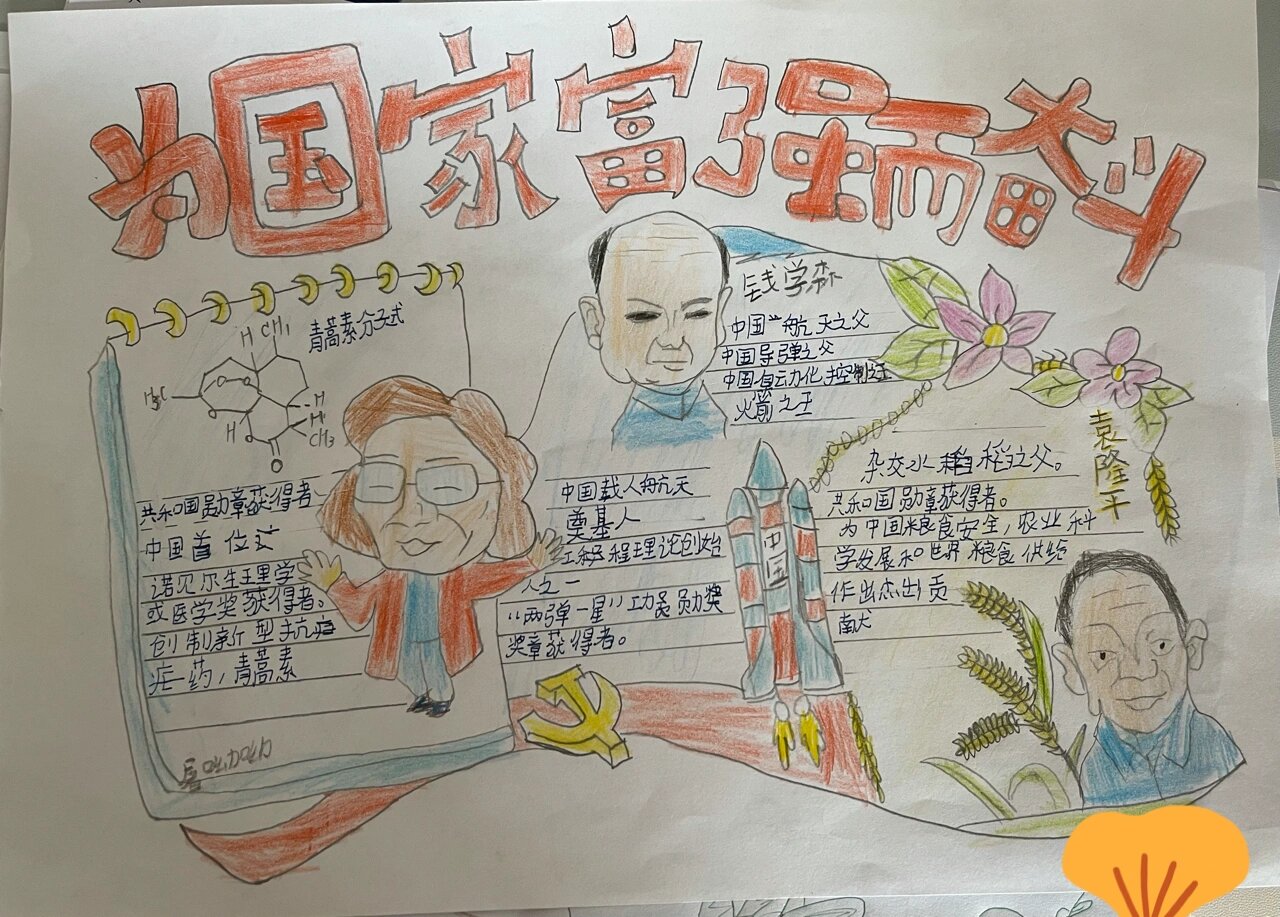 为国家富强而奋斗
青蒿素分子式
H CH₁
H₃C
H
H
H
CH₃
O
共和国勋章获得者
中国首位
诺贝尔生理学
或医学奖获得者。
创制新型抗疟
药，青蒿素
钱学森
中国航天之父
中国导弹之父
中国自动化控制之
火箭之王
中国载人航天
奠基人
工程理论创始
人之一
“两弹一星”功勋奖
奖章获得者。
中国
袁隆平
杂交水稻之父。
共和国勋章获得者。
为中国粮食安全，农业科
学发展和世界粮食供给
作出杰出贡
献